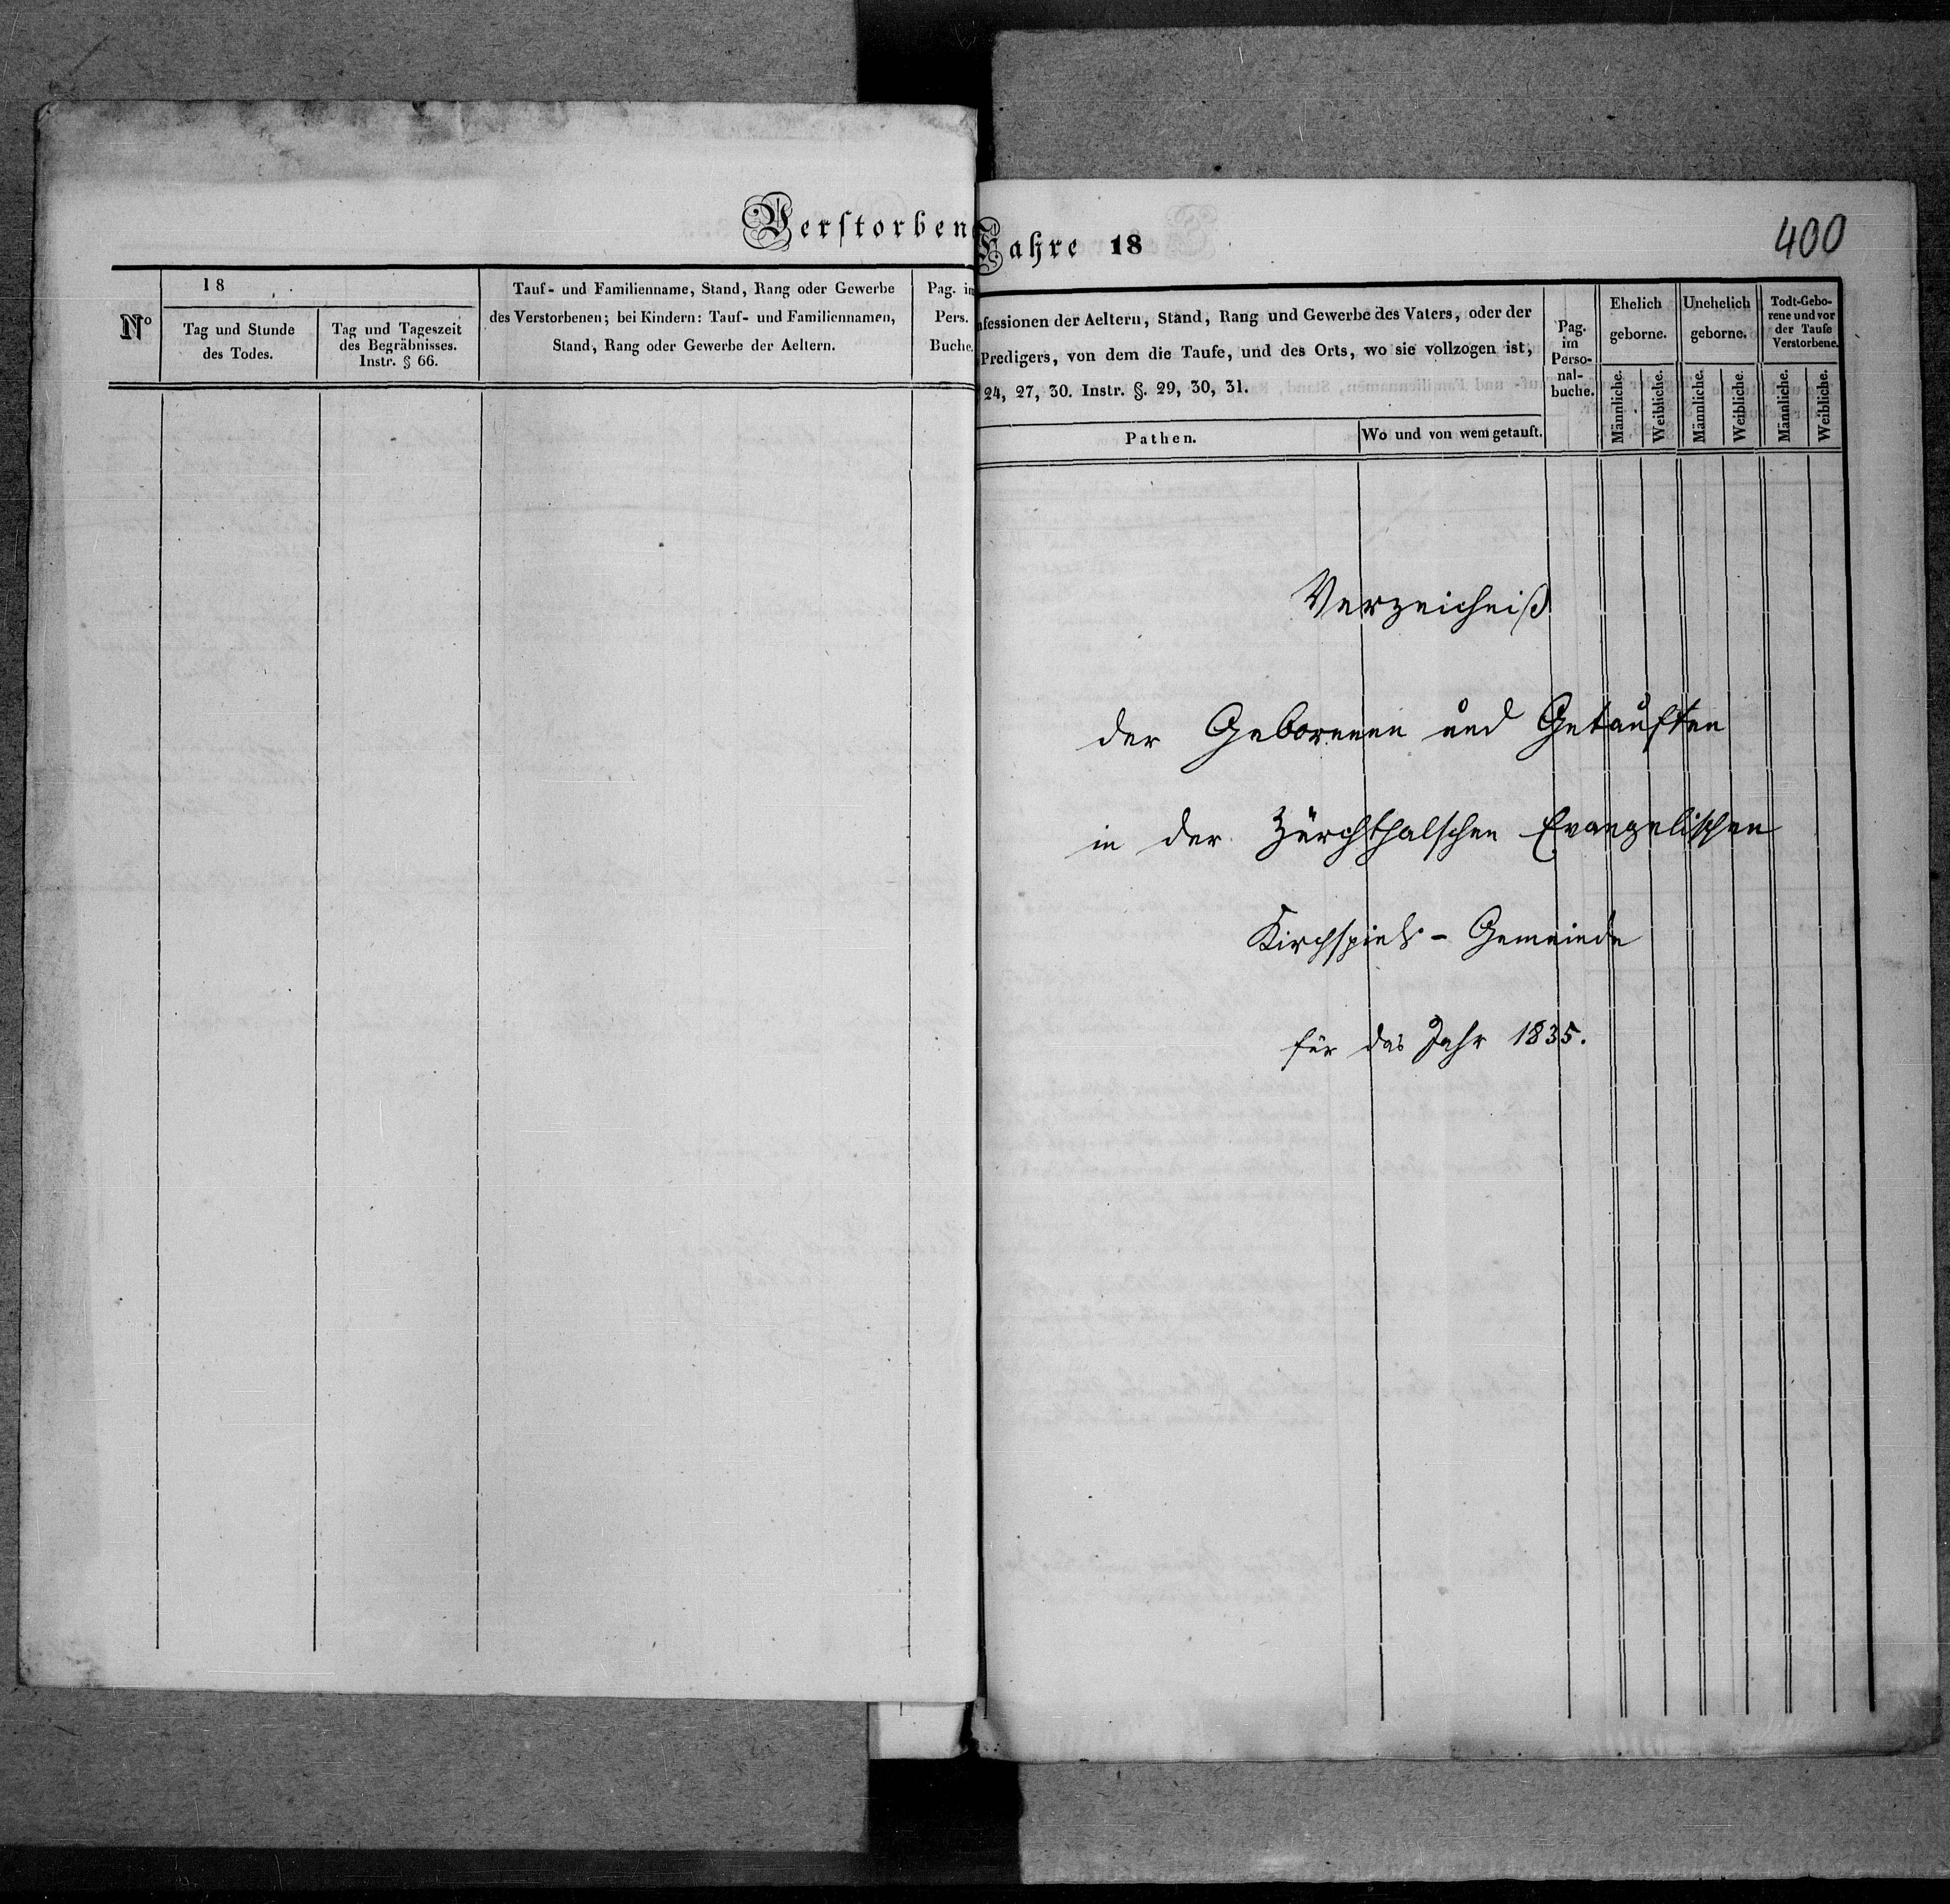 Verstorben
18
N°
Tag und Stunde
des Todes.
Tag und Tageszeit
des Begräbnisses.
Instr. § 66.
Tauf- und Familienname, Stand, Rang oder Gewerbe
des Verstorbenen; bei Kindern: Tauf- und Familiennamen,
Stand, Rang oder Gewerbe der Aeltern.
Pag. in
Pers.
Buche.
Jahre 18
400
nfessionen der Aeltern, Stand, Rang und Gewerbe des Vaters, oder der
Predigers, von dem die Taufe, und des Orts, wo sie vollzogen ist,
24, 27, 30. Instr. §. 29, 30, 31.
Pathen.
Wo und von wem getauft.
Pag.
im
Perso-
nal-
buche.
Ehelich
geborne.
Unehelich
geborne.
Todt-Gebo-
rene und vor
der Taufe
Verstorbene.
Männliche.
Weibliche.
Männliche.
Weibliche.
Männliche.
Weibliche.
Verzeichniß
der Gebornen und Getauften
in der Zürchthalschen Evangelischen
Kirchspiels - Gemeinde
für das Jahr 1835.